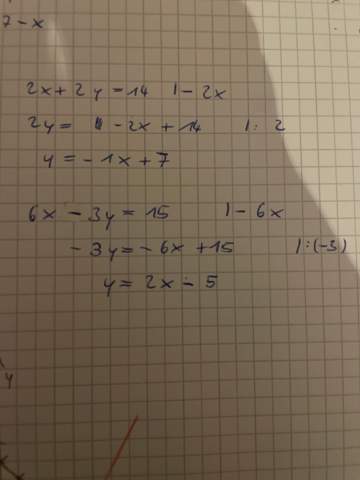 7-x
2x + 2y = 14 | - 2x
2y = - 2x + 14 | : 2
y = - 1x + 7
6x - 3y = 15 | - 6x
- 3y = - 6x + 15 | : (-3)
y = 2x - 5
y